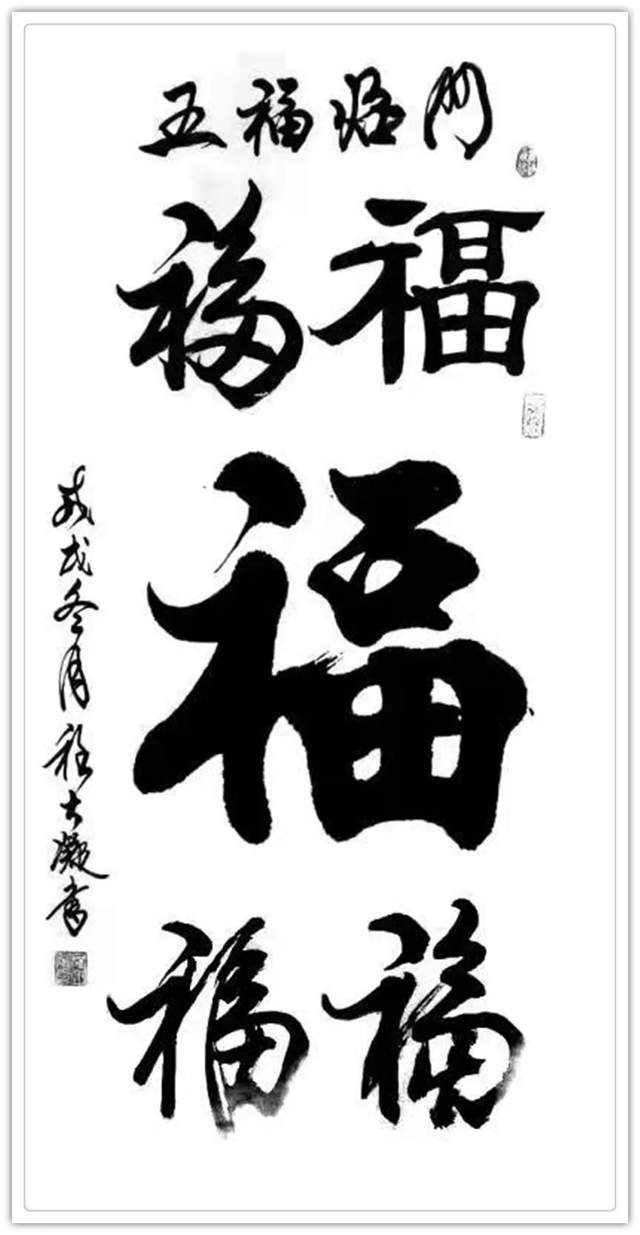 五福临门
福福
福
福福
戊戌冬月程大凝书